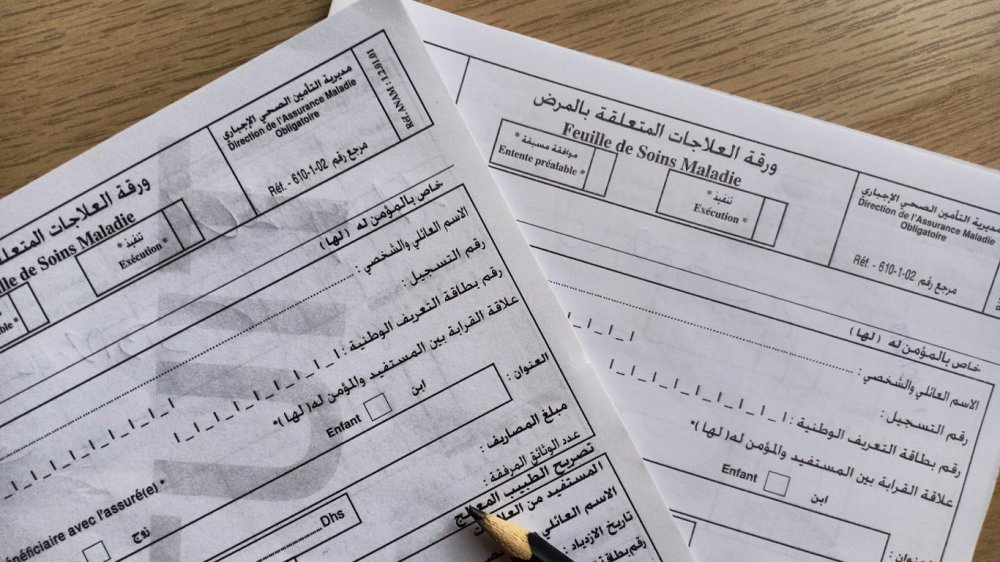 Réf. ANAM : 1.2.01.01
مديرية التأمين الصحي الإجباري
Direction de l'Assurance Maladie
Obligatoire
مرجع رقم Réf. - 610-1-02
ورقة العلاجات
de Soins Maladie
تنفيذ *
Exécution *
خاص بالمؤمن له (لها)
الاسم العائلي والشخصي :
رقم التسجيل :
رقم بطاقة التعريف الوطنية :
علاقة القرابة بين المستفيد والمؤمن له(لها)*
ابن Enfant
avec l'assuré(e) *
زوج
العنوان :
مبلغ المصاريف :
Dhs
عدد الوثائق المرفقة :
تصريح الطبيب المعالج
المستفيد من
الاسم العائلي
تاريخ الازدياد :
ورقة العلاجات المتعلقة بالمرض
Feuille de Soins Maladie
موافقة مسبقة *
Entente préalable *
تنفيذ *
Exécution *
مديرية التأمين الصحي الإجباري
Direction de l'Assurance Maladie
Obligatoire
مرجع رقم Réf. - 610-1-02
خاص بالمؤمن له (لها)
الاسم العائلي والشخصي :
رقم التسجيل :
رقم بطاقة التعريف الوطنية :
علاقة القرابة بين المستفيد والمؤمن له(لها)*
ابن Enfant
العنوان :